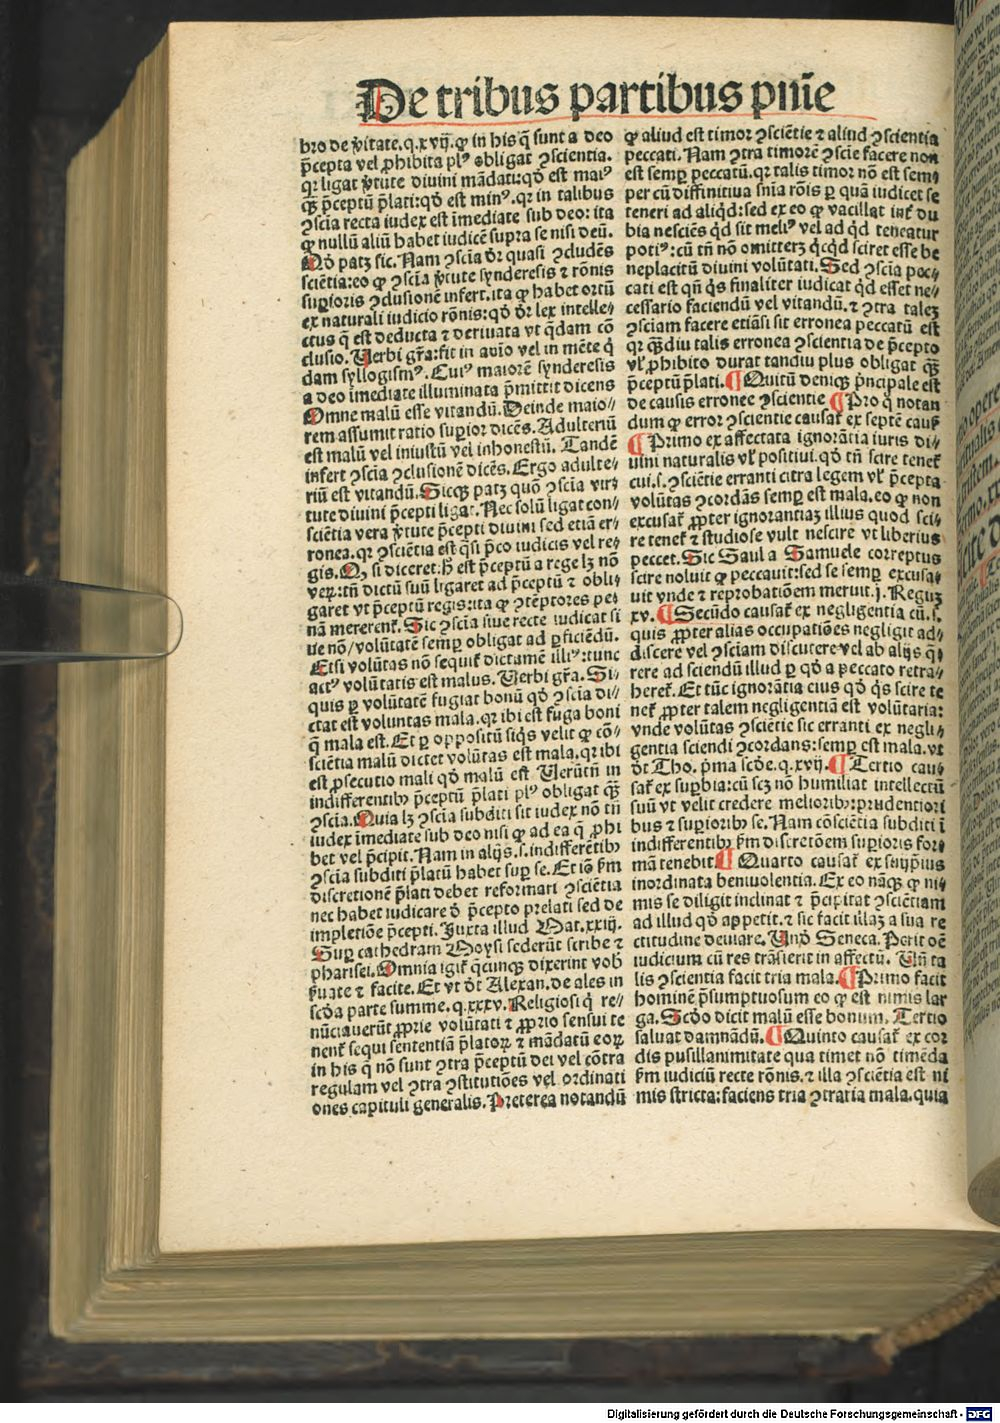 De tribus partibus pnīe
bro de v̄itate.q.xvij.ꝙ in his q̄ sunt a deo
p̄cepta vel ꝓhibita plꝰ obligat ꝯscientia.
qꝛ ligat v̄tute diuini mādati:qd̓ est maiꝰ
qꝫ̄ p̄ceptū p̄lati:qd̓ est minꝰ.qꝛ in talibus
ꝯscīa recta iudex est īmediate sub deo: ita
ꝙ nullū aliū habet iudicē supra se nisi deū.
Qd̓ patꝫ sic. Nam ꝯscīa dr̄ quasi ꝯcludēs
sciētia:eo ꝙ ꝯscīa v̄tute synderesis ⁊ rōnis
suꝑioris ꝯclusionē infert.ita ꝙ habet ortū
ex naturali iudicio rōnis:qd̓ dr̄ lex intelle⸗
ctus q̄ est deducta ⁊ deriuata vt q̄dam cō
clusio. Uerbi gr̄a:fit in aīo vel in mēte q̄
dam syllogismꝰ. Cuiꝰ maiorē synderesis
a deo īmediate illuminata p̄mittit dicens
Omne malū esse vitandū. Deinde maio⸗
rem assumit ratio suꝑior dicēs. Adulteriū
est malū vel iniustū vel inhonestū. Tandē
infert ꝯscīa ꝯclusionē dicēs. Ergo adulte⸗
riū est vitandū. Sicqꝫ patꝫ quō ꝯscīa vir⸗
tute diuini p̄cepti ligat. Nec solū ligat con⸗
sciētia vera v̄tute p̄cepti diuini sed etiā er⸗
ronea.qꝛ ꝯsciētia est q̄si p̄co iudicis vel re⸗
gis. Qꝫ si diceret:h̄ est p̄ceptū a rege lꝫ nō
veꝝ:tn̄ dictū suū ligaret ad p̄ceptū ⁊ obli⸗
garet vt p̄ceptū regis:ita ꝙ ꝯtēptores pe⸗
nā mererent᷑. Sic ꝯscīa siue recte iudicat si
ue nō/volūtatē semꝑ obligat ad ꝑficiēdū.
Etsi volūtas nō sequit᷑ dictamē illiꝰ:tunc
actꝰ volūtatis est malus. Uerbi gr̄a. Si⸗
quis ꝑ volūtatē fugiat bonū qd̓ ꝯscīa di⸗
ctat est voluntas mala.qꝛ ibi est fuga boni
q̄ mala est. Et ꝑ oppositū siq̄s velit ꝙ cō⸗
sciētia malū dictet volūtas est mala.qꝛ ibi
est ꝓsecutio mali qd̓ malū est. Uerūtn̄ in
indifferentibꝰ p̄ceptū p̄lati plꝰ obligat qꝫ̄
ꝯscīa. Quia lꝫ ꝯscīa subditi sit iudex nō tn̄
iudex īmediate sub deo nisi ꝙ ad ea q̄ ꝓhi
bet vel p̄cipit. Nam in alijs.s.indifferētibꝰ
ꝯscīa subditi p̄latū habet suꝑ se. Et iō ẜm
discretionē p̄lati debet reformari ꝯsciētia
nec habet iudicare d̓ p̄cepto prelati sed de
impletiōe p̄cepti. Juxta illud Mat.xxiij.
Suꝑ cathedram Moysi sederūt scribe ⁊
pharisei. Omnia igit᷑ q̄cunqꝫ dixerint vob̄
ẜuate ⁊ facite. Et vt dt̄ Alexan.de ales in
scd̓a parte summe.q.xxxv. Religiosi q̄ re⸗
nūciauerūt ꝓprie volūtati ⁊ ꝓprio sensui te
nent᷑ sequi sententiā p̄latoꝝ ⁊ mādatū eoꝝ
in his q̄ nō sunt ꝯtra p̄ceptū dei vel cōtra
regulam vel ꝯtra ꝯstitutiōes vel ordinati
ones capituli generalis. Preterea notandū
ꝙ aliud est timor ꝯsciētie ⁊ aliud ꝯscientia
peccati. Nam ꝯtra timorē ꝯscīe facere non
est semꝑ peccatū.qꝛ talis timor nō est semꝑ
per cū diffinitiua sn̄ia rōis ꝑ quā iudicet se
teneri ad aliqd̓:sed ex eo ꝙ vacillat int᷑ du
bia nesciēs qd̓ sit meliꝰ vel ad qd̓ teneatur
potiꝰ:cū tn̄ nō omitterꝫ qd̓cqd̓ sciret esse be
neplacitū diuini volūtati. Sed ꝯscīa pec⸗
cati est qn̄ q̄s finaliter iudicat qd̓ esset ne⸗
cessario faciendū vel vitandū.⁊ ꝯtra taleꝫ
ꝯsciam facere etiāsi sit erronea peccatū est
qꝛ qꝫ̄diu talis erronea ꝯscientia de p̄cepto
vl̓ ꝓhibito durat tandiu plus obligat qꝫ̄
p̄ceptū p̄lati. ¶ Quītū deniqꝫ p̄ncipale est
de causis erronee ꝯscientie ¶ Pro q̄ notan
dum ꝙ error ꝯscientie causat᷑ ex septē cauẜ
¶ Primo ex affectata ignorātia iuris di⸗
uini naturalis vl̓ positiui.qd̓ tn̄ scire tenet᷑
cui.s.ꝯsciētie erranti citra legem vl̓ p̄cepta
volūtas ꝯcordās semꝑ est mala.eo ꝙ non
excusat᷑ ꝓpter ignorantiaꝫ illius quod sci⸗
re tenet᷑ ⁊ studiose vult nescire vt liberius
peccet. Sic Saul a Samuele correptus
scire noluit ꝙ peccauit:sed se semꝑ excusa⸗
uit vnde ⁊ reprobatiōem meruit.j. Reguꝫ
xv. ¶ Secūdo causat᷑ ex negligentia cū.s.
quis ꝓpter alias occupatiōes negligit ad⸗
discere vel ꝯsciam discutere vel ab alijs q̄⸗
rere ad sciendū illud ꝑ qd̓ a peccato retra⸗
heret᷑. Et tūc ignorātia eius qd̓ q̄s scire te
net᷑ ꝓpter talem negligentiā est volūtaria:
vnde volūtas ꝯsciētie sic erranti ex negli⸗
gentia sciendi ꝯcordans:semꝑ est mala.vt
dt̄ Tho. p̄ma scd̓e.q.xvij. ¶ Tertio cau⸗
sat᷑ ex suꝑbia:cū scꝫ nō humiliat intellectū
suū vt velit credere melioribꝰ:prudentiori
bus ⁊ suꝑioribꝰ se. Nam cōsciētia subditi ī
indifferentibꝰ ẜm discretōem suꝑioris for⸗
mā tenebit᷑ ¶ Quarto causat᷑ ex suijp̄ius
inordinata beniuolentia. Ex eo nāqꝫ ꝙ ni⸗
mis se diligit inclinat ⁊ p̄cipitat ꝯsciētiam
ad illud qd̓ appetit.⁊ sic facit illaꝫ a sua re
ctitudine deuiare. Un̄ Seneca. Perit oē
iudicium cū res trāsierit in affectū. Un̄ ta
lis ꝯscientia facit tria mala. ¶ Primo facit
hominē p̄sumptuosum eo ꝙ est nimis lar
ga. Scd̓o dicit malū esse bonum. Tertio
saluat damnādū. ¶ Quinto causat᷑ ex cor
dis pusillanimitate qua timet nō timēda
ẜm iudiciū recte rōnis.⁊ illa ꝯsciētia est ni
mis stricta:faciens tria ꝯtraria mala.quia
Digitalisierung gefördert durch die Deutsche Forschungsgemeinschaft - DFG